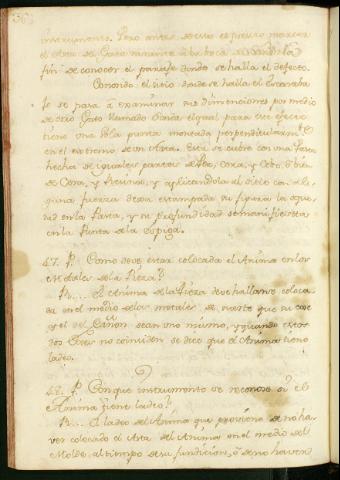 instrumento. Pero antes de esto es preciso marcar
el Asta del Gato rasante a la boca del
fin de conocer el parage donde se halla el defecto.
Conocido el sitio donde se halla el Escarava
jo se pasa á examinar sus dimenciones por medio
de otro Gato llamado qual para este efecto
tiene una sola punta montada perpendicularm.te
en el extremo de un Asta. Esta se cubre con una Pasta
hecha de iguales partes de Pez, Cera, y Cebo, ó bien
de Cera, y Recina, y aplicandola al sitio con al-
guna fuerza dexa estampada su figura la oque
dad en la Pasta, y su profundidad se manifiesta
en la Punta de la espiga.
47. P. Como deve estar colocada el Anima en los
Metales de la Pieza?
R. El Anima de la Pieza deve hallarse coloca
da en el medio de los metales, de suerte que su exe
y el del Cañon sean uno mismo, y quando estos
dos Exes no coinciden se dice que el Anima tiene
ladeo.
48. P. Con que instrumento se reconoce si el
Anima tiene ladeo?
R. El ladeo del Anima que proviene de no ha-
ver colocado el Asta del Anima en el medio del
Molde, al tiempo de su fundicion, ó de no haverse